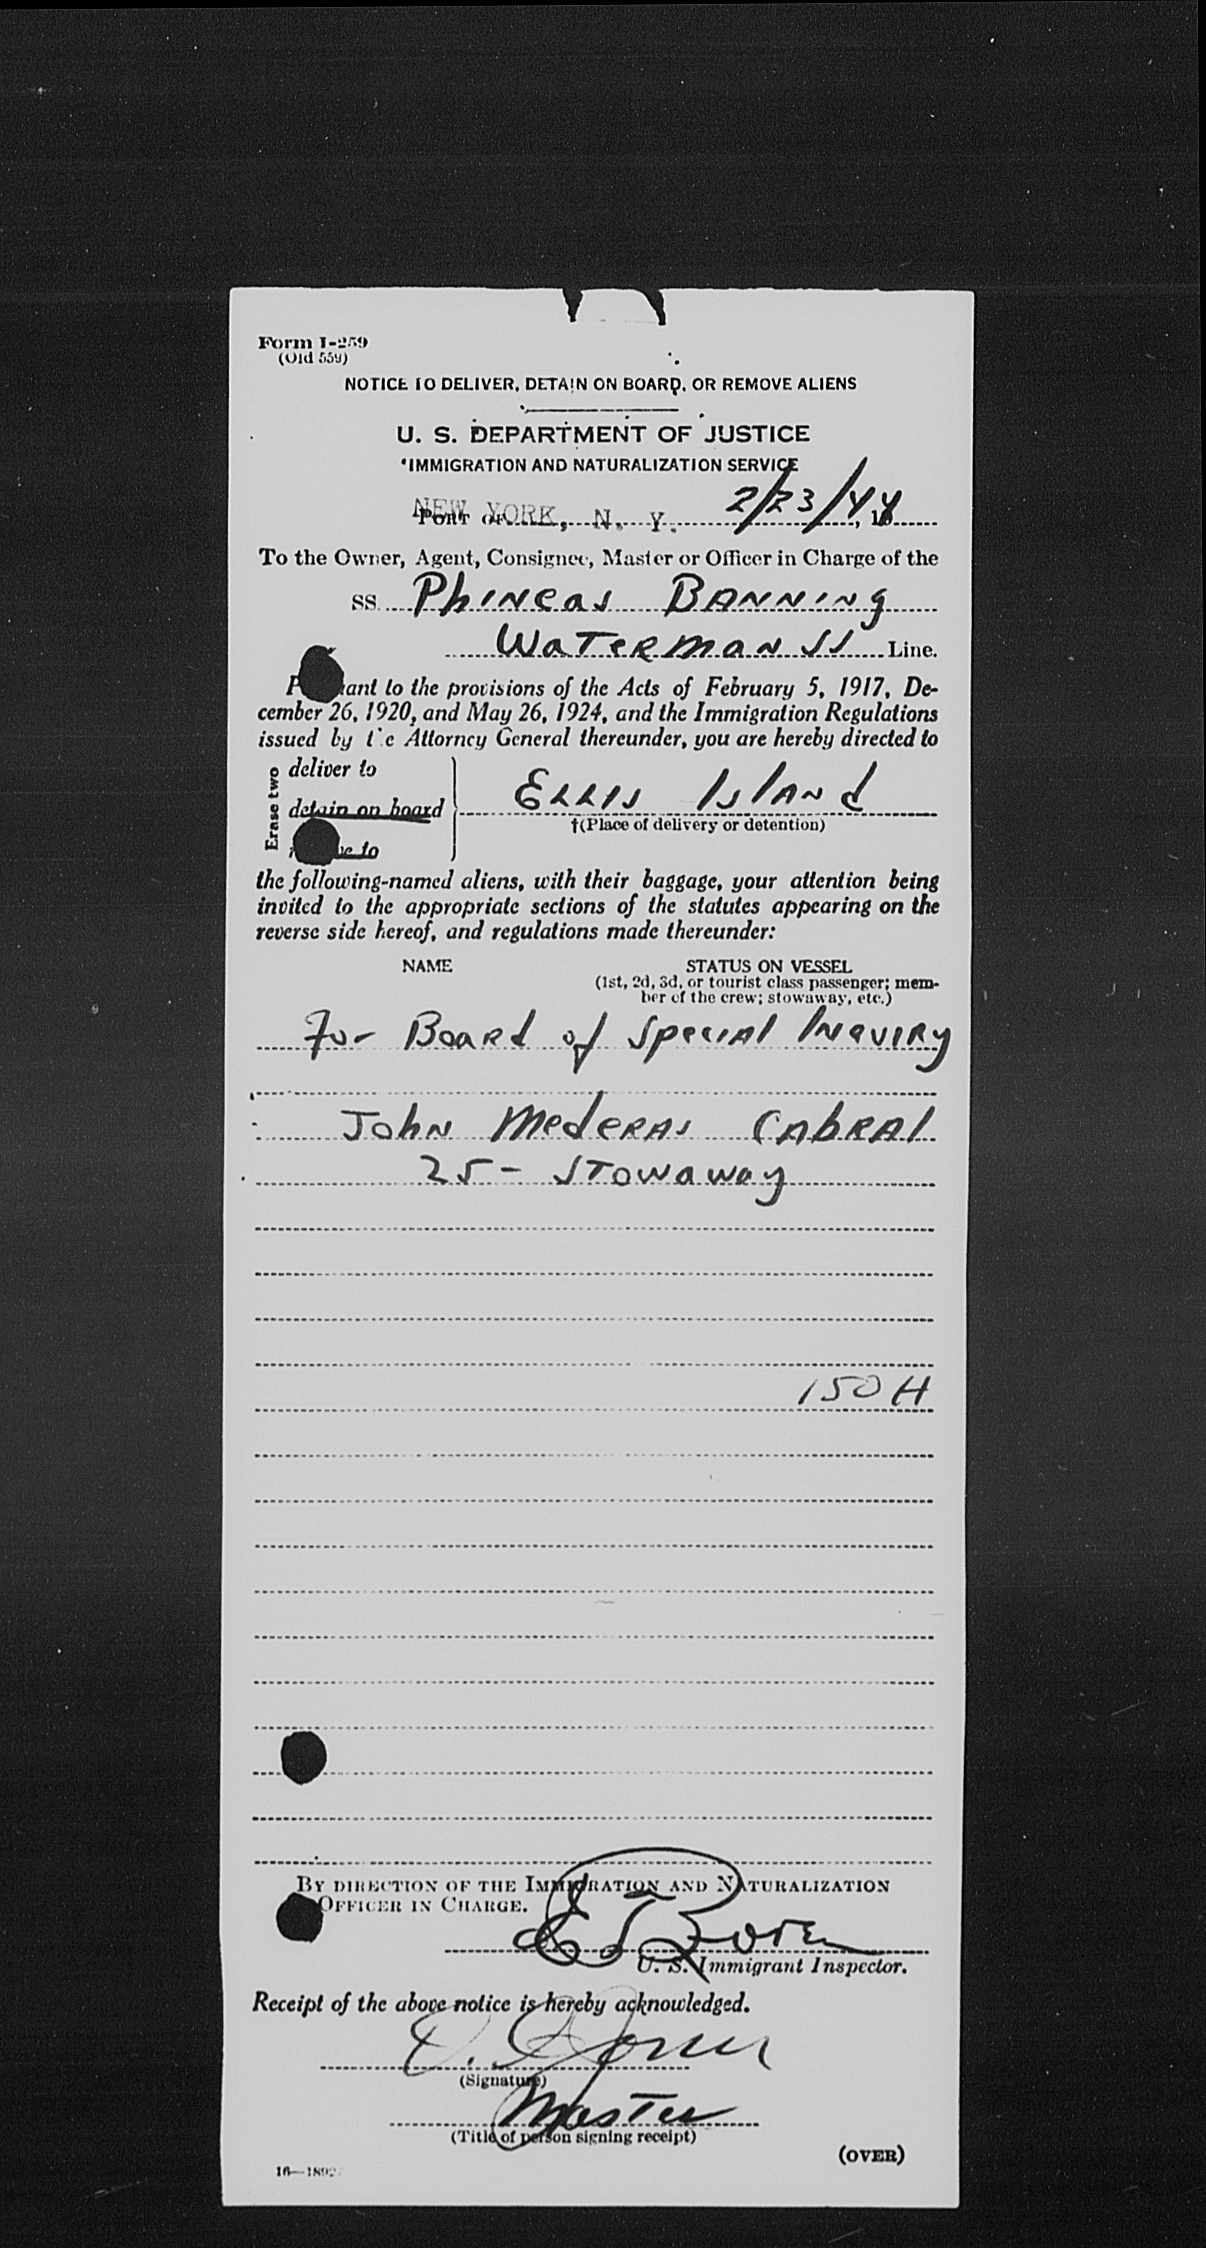 Form I-259
(Old 559)
NOTICE TO DELIVER, DETAIN ON BOARD, OR REMOVE ALIENS
U. S. DEPARTMENT OF JUSTICE
IMMIGRATION AND NATURALIZATION SERVICE
NEW YORK, N. Y. 2/23/44
PORT OF , 19
To the Owner, Agent, Consignee, Master or Officer in Charge of the
SS Phineas Banning
Waterman SS Line.
P ant to the provisions of the Acts of February 5, 1917, De-
cember 26, 1920, and May 26, 1924, and the Immigration Regulations
issued by t e Attorney General thereunder, you are hereby directed to
Erase two
deliver to
detain on board
ve to
Ellis Island
†(Place of delivery or detention)
the following-named aliens, with their baggage, your attention being
invited to the appropriate sections of the statutes appearing on the
reverse side hereof, and regulations made thereunder:
NAME STATUS ON VESSEL
(1st, 2d, 3d, or tourist class passenger; mem-
ber of the crew; stowaway, etc.)
For Board of Special Inquiry
John Mederas Cabral
25 - Stowaway
150 H
BY DIRECTION OF THE IMMIGRATION AND NATURALIZATION
OFFICER IN CHARGE.
U. S. Immigrant Inspector.
Receipt of the above notice is hereby acknowledged.
(Signature)
Master
(Title of person signing receipt)
(OVER)